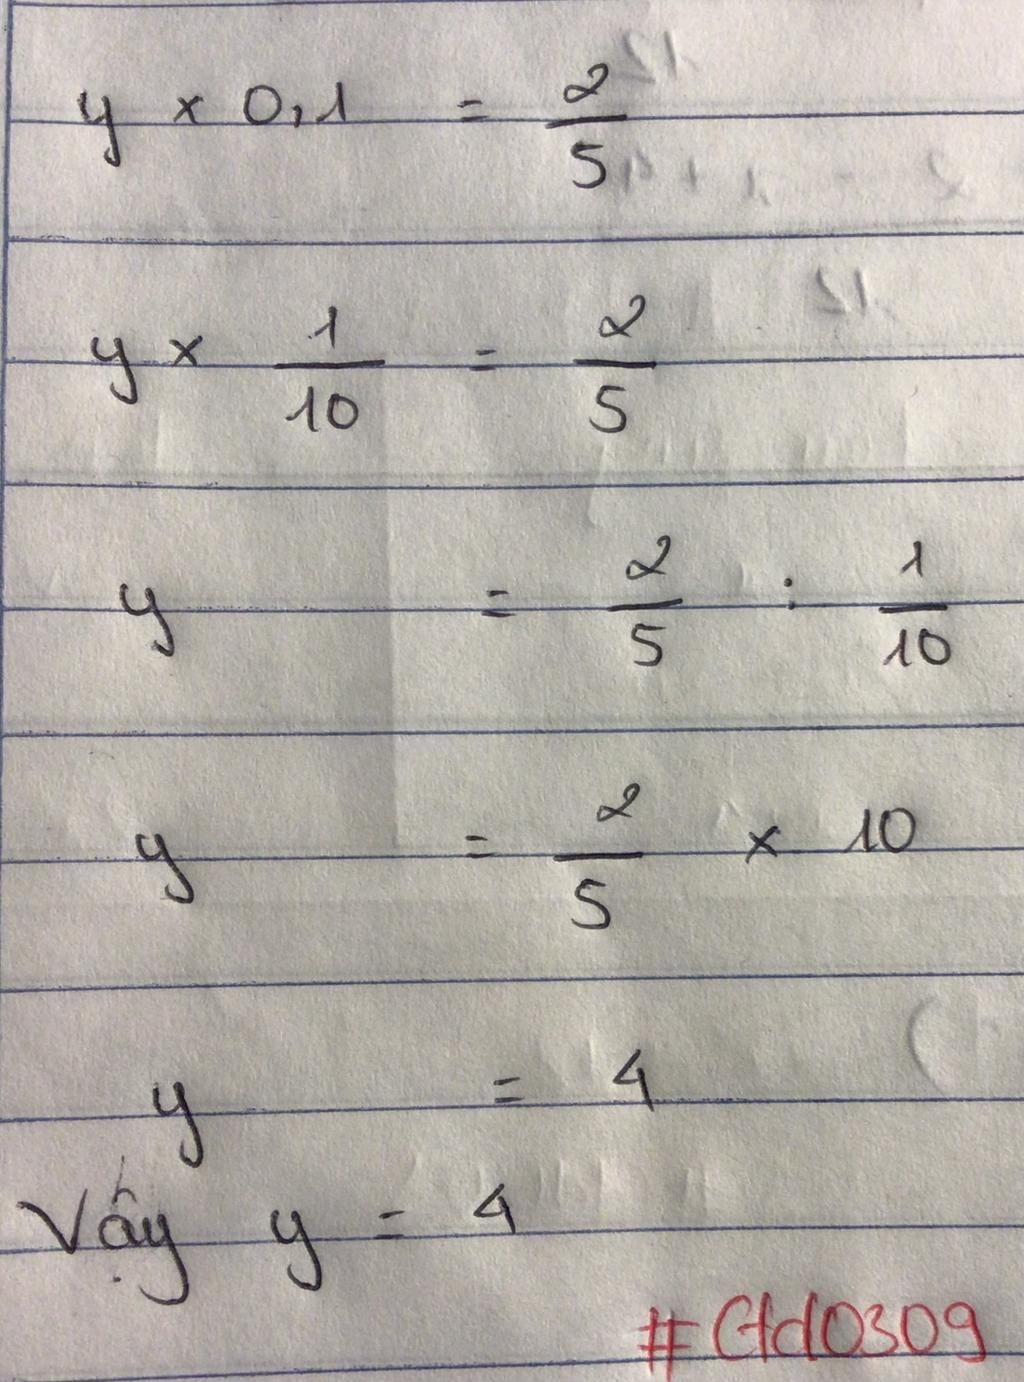 y × 0,1 = 2/5
y × 1/10 = 2/5
y = 2/5 : 1/10
y = 2/5 × 10
y = 4
Vậy y = 4
#Ctd0309